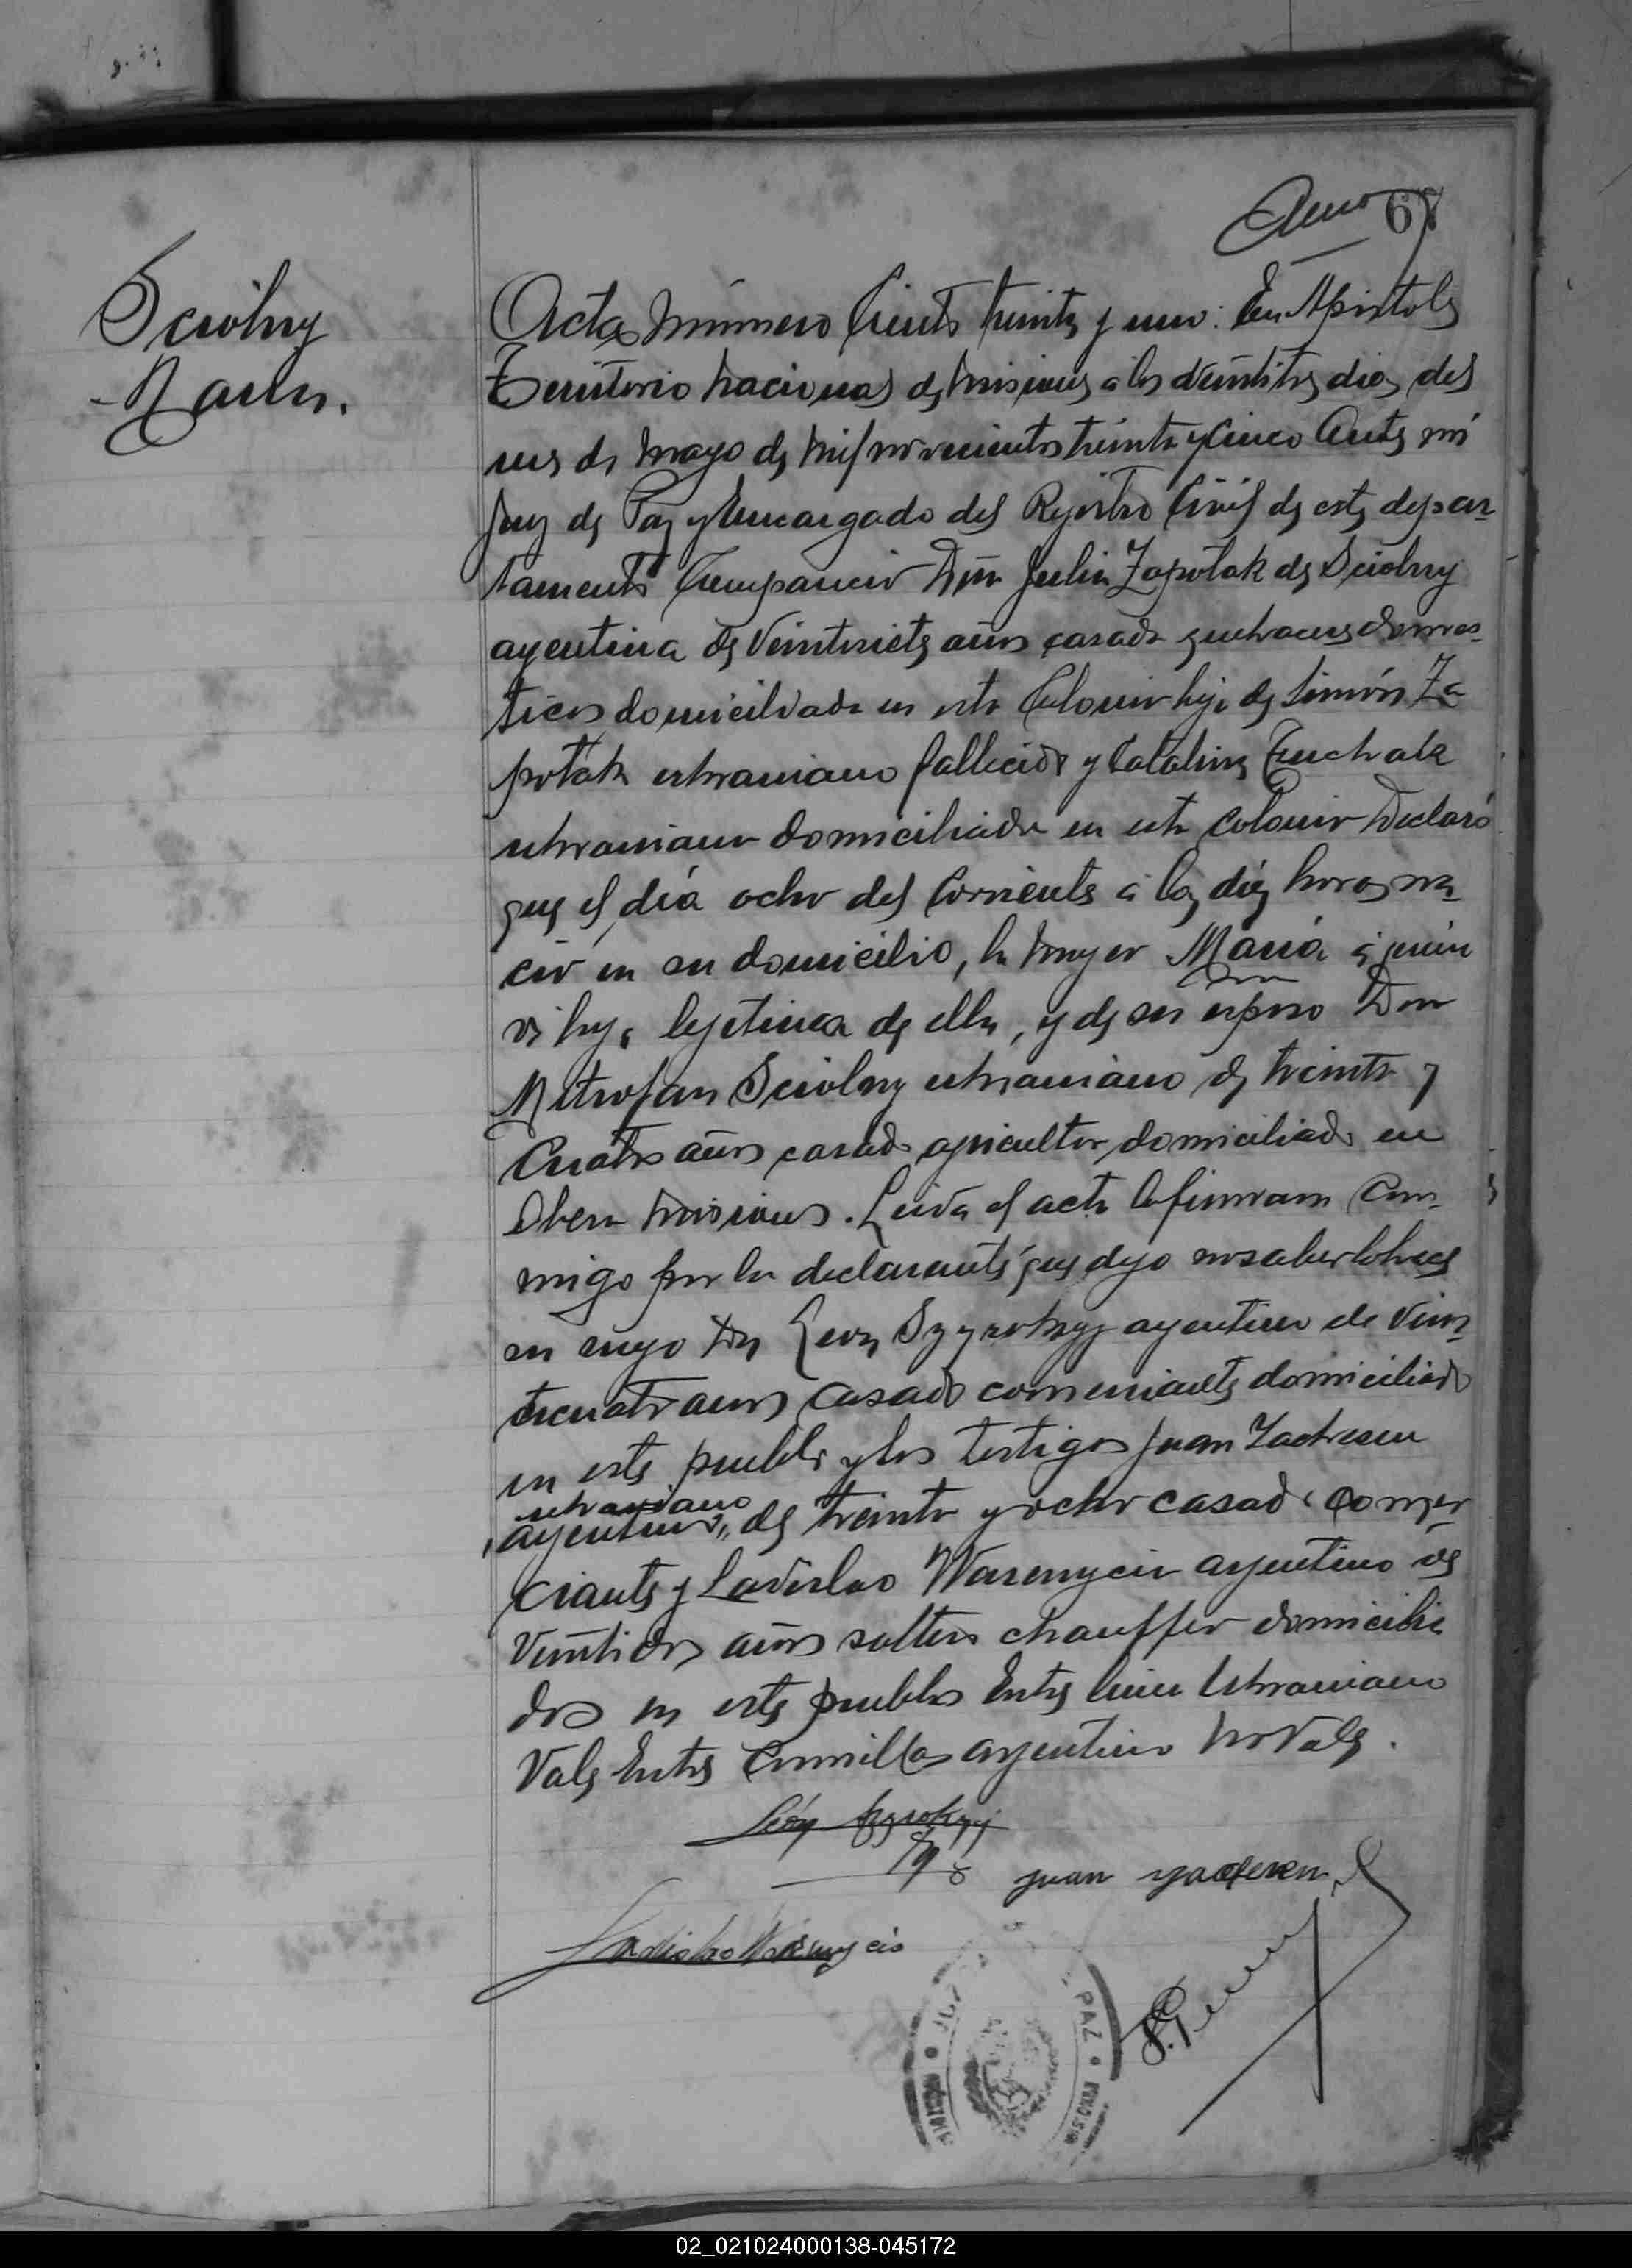 68
Sciolny
Maria.
Acta Número Ciento treinta y uno: En Apóstoles
Territorio Nacional de Misiones a los veintitres dias del
mes de Mayo de Mil novecientos treinta y cinco Ante mí
Juez de Paz y Encargado del Rejistro Civil de este depar-
tamento Compareció Doña Julia Zapotak de Sciolny
argentina de Veintisiete años casada quehaceres domes-
ticos domiciliada en esta Colonia hija de Simón Za
potak ukraniano fallecido y Catalina
ukraniana domiciliada en esta Colonia Declaró
que el día ocho del corriente a las diez horas na
ció en su domicilio, la mujer María a quien
vi hija lejitima de ella, y de su esposo Don
Mitrofan Sciolny ukraniano de treinta y
cuatro años casado agricultor domiciliado en
Obera Misiones. Leida el acta la firmaron con-
migo por la declarante que dijo no saber lo hace
su ruego Don Leon argentino de Vein-
ticuatro años casado comerciante domiciliado
en este pueblo y los testigos Juan
ukraniano
argentino,, de treinta y ocho casado comer-
ciante y Ladislao argentino de
Veintidos años soltero chauffer domicilia
dos en este pueblo Entre linea Ukraniano
Vale Entre Comillas argentino No Vale.
León
Juan
Ladislao
PAZ